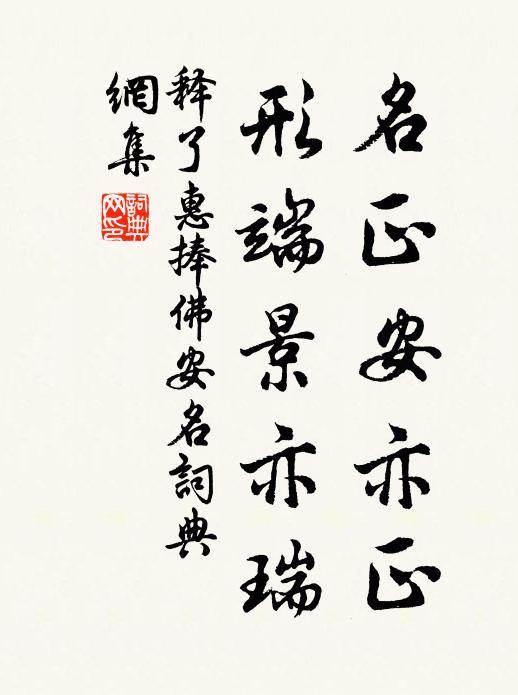 名正安亦正
形端景亦瑞
释了惠捧佛安名詞典
網集
詞典
网印